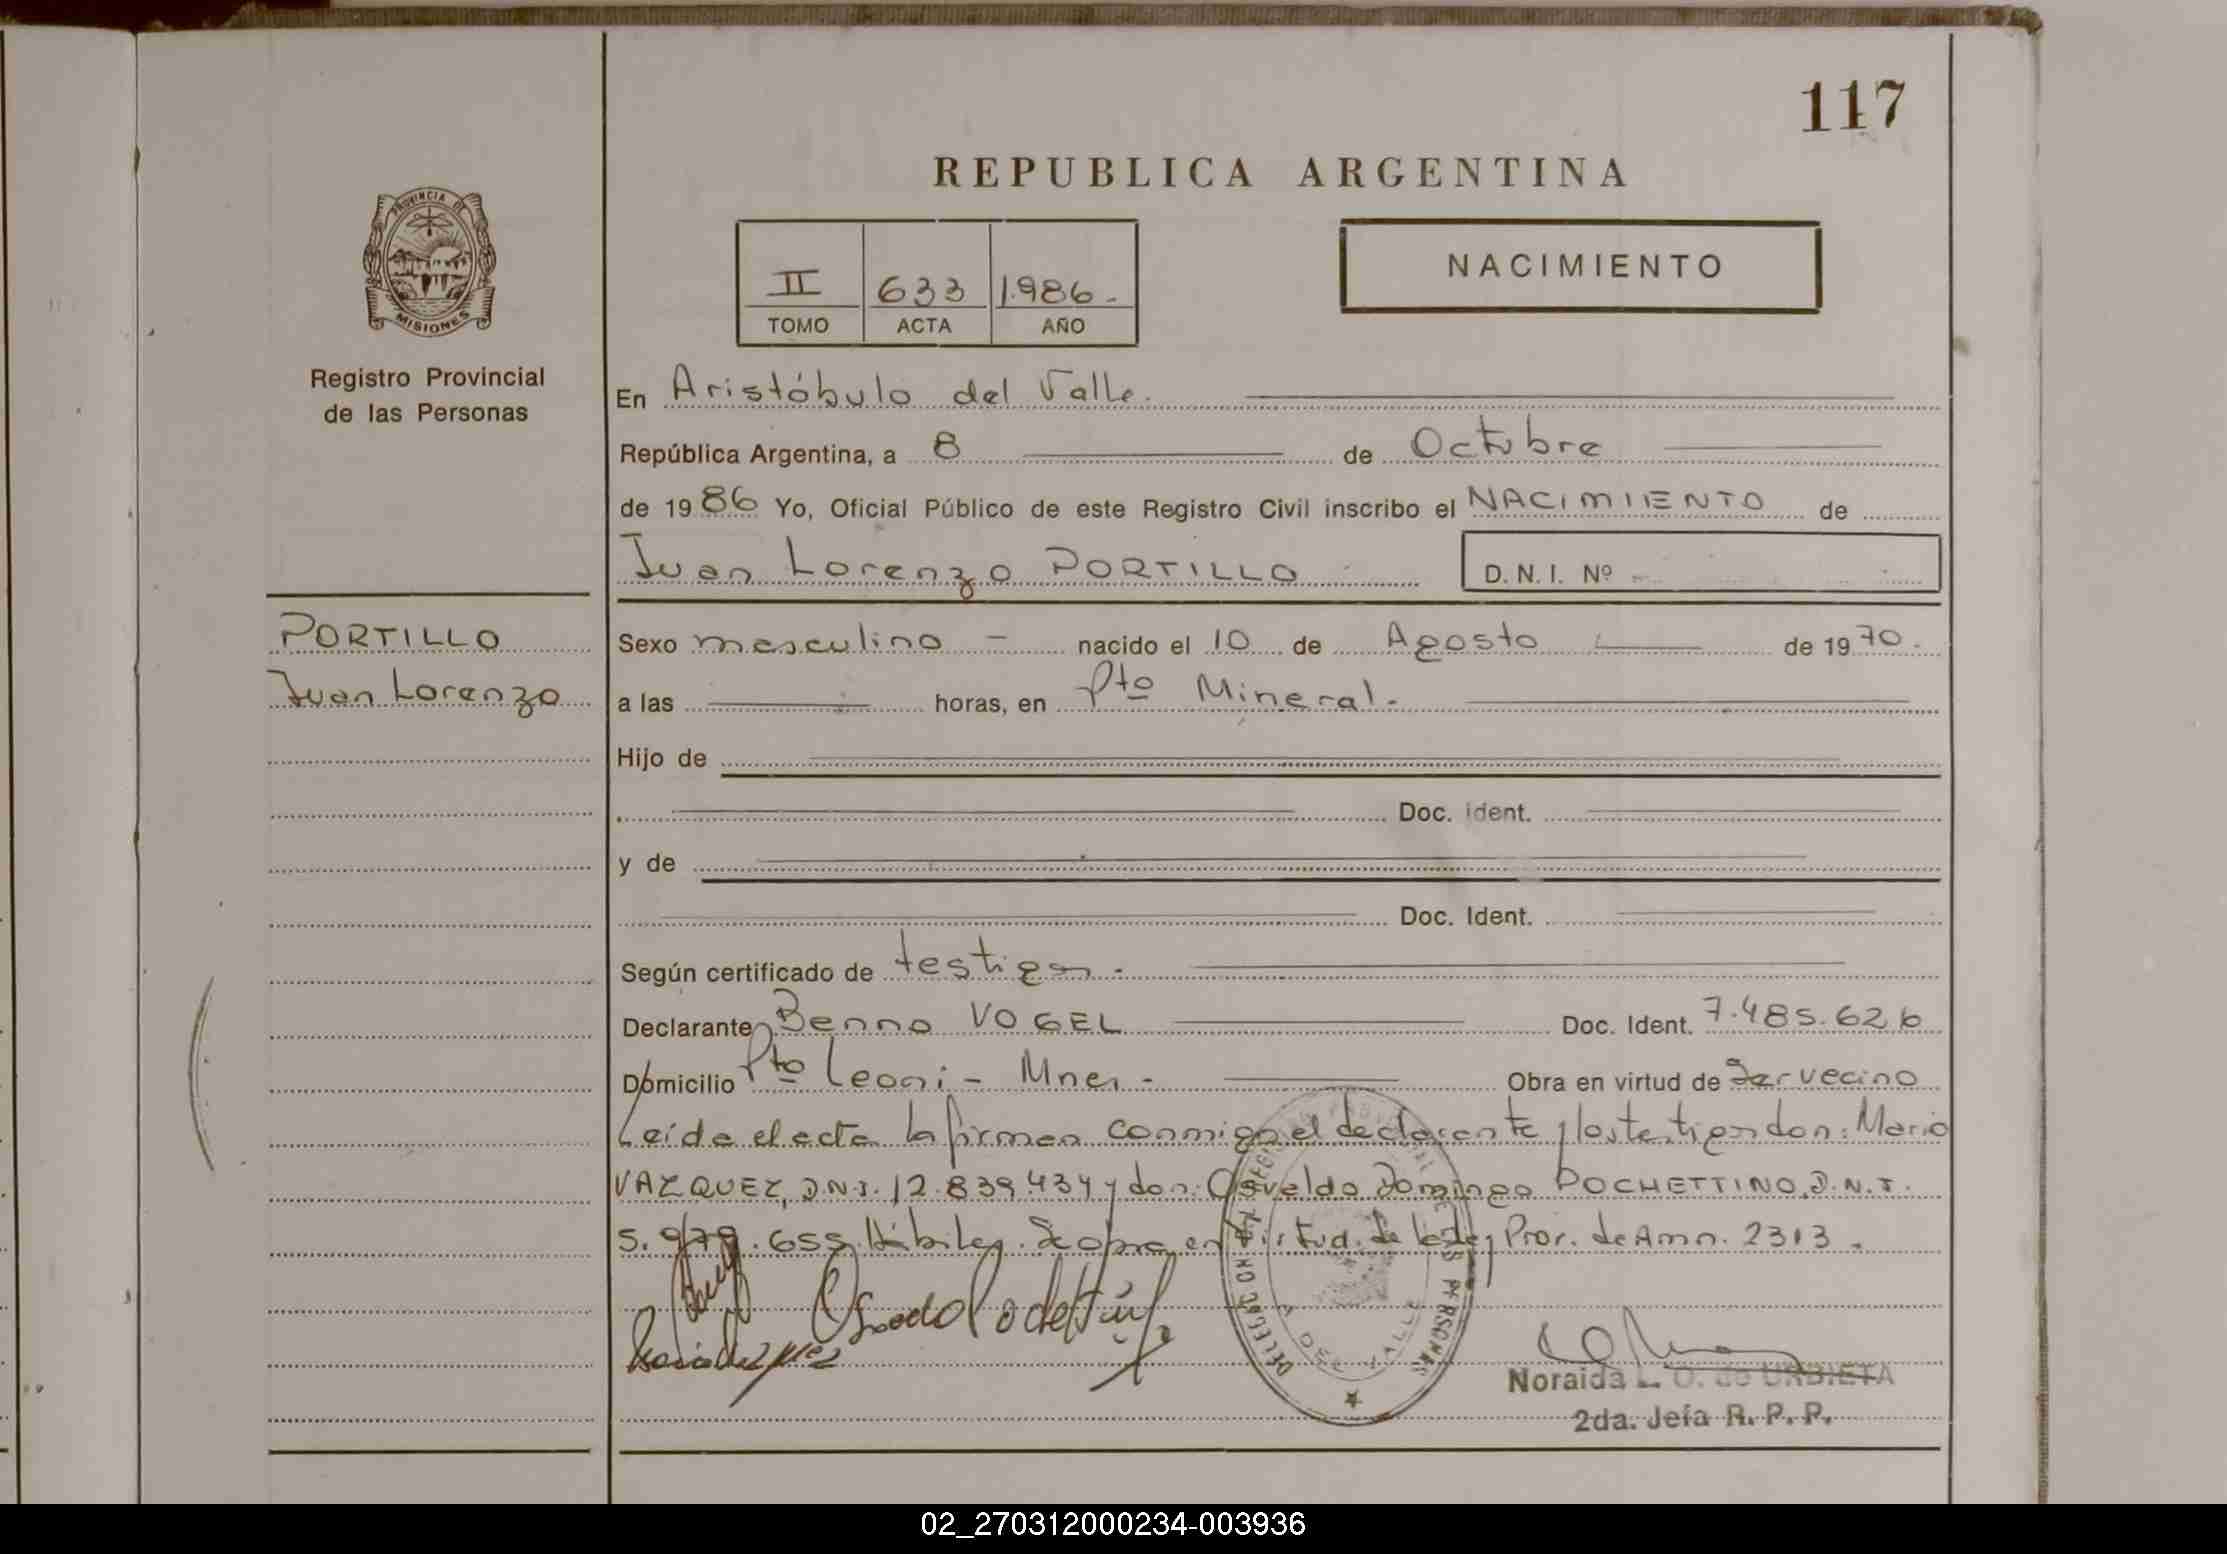 117
REPUBLICA ARGENTINA
PROVINCIA DE
MISIONES
Registro Provincial
de las Personas
II 633 1.986.-
TOMO ACTA AÑO
NACIMIENTO
En Aristóbulo del Valle.
República Argentina, a 8 de Octubre
de 1986 Yo, Oficial Público de este Registro Civil inscribo el NACIMIENTO de
Juan Lorenzo PORTILLO
D. N. I. Nº
PORTILLO
Juan Lorenzo
Sexo masculino - nacido el 10 de Agosto de 1970.
a las horas, en Pto Mineral.-
Hijo de
Doc. ident.
y de
Doc. Ident.
Según certificado de testigos.-
Declarante Benno VOGEL Doc. Ident. 7.485.626
Domicilio Pto Leoni - Mnes.- Obra en virtud de Ser vecino
Leída el acta la firman conmigo el declarante y los testigos don: Mario
VAZQUEZ, D.N.I. 12.839.434 y don: Osvaldo Domingo POCHETTINO, D.N.I.
5.979.655. Hábiles. Se obra en virtud de la Ley Pror. de Amn. 2313.
DELEGACION DEL REGISTRO PROVINCIAL DE LAS PERSONAS
A DEL VALLE
Noraida L. O. de URBIETA
2da. Jefa R. P. P.
02_270312000234-003936